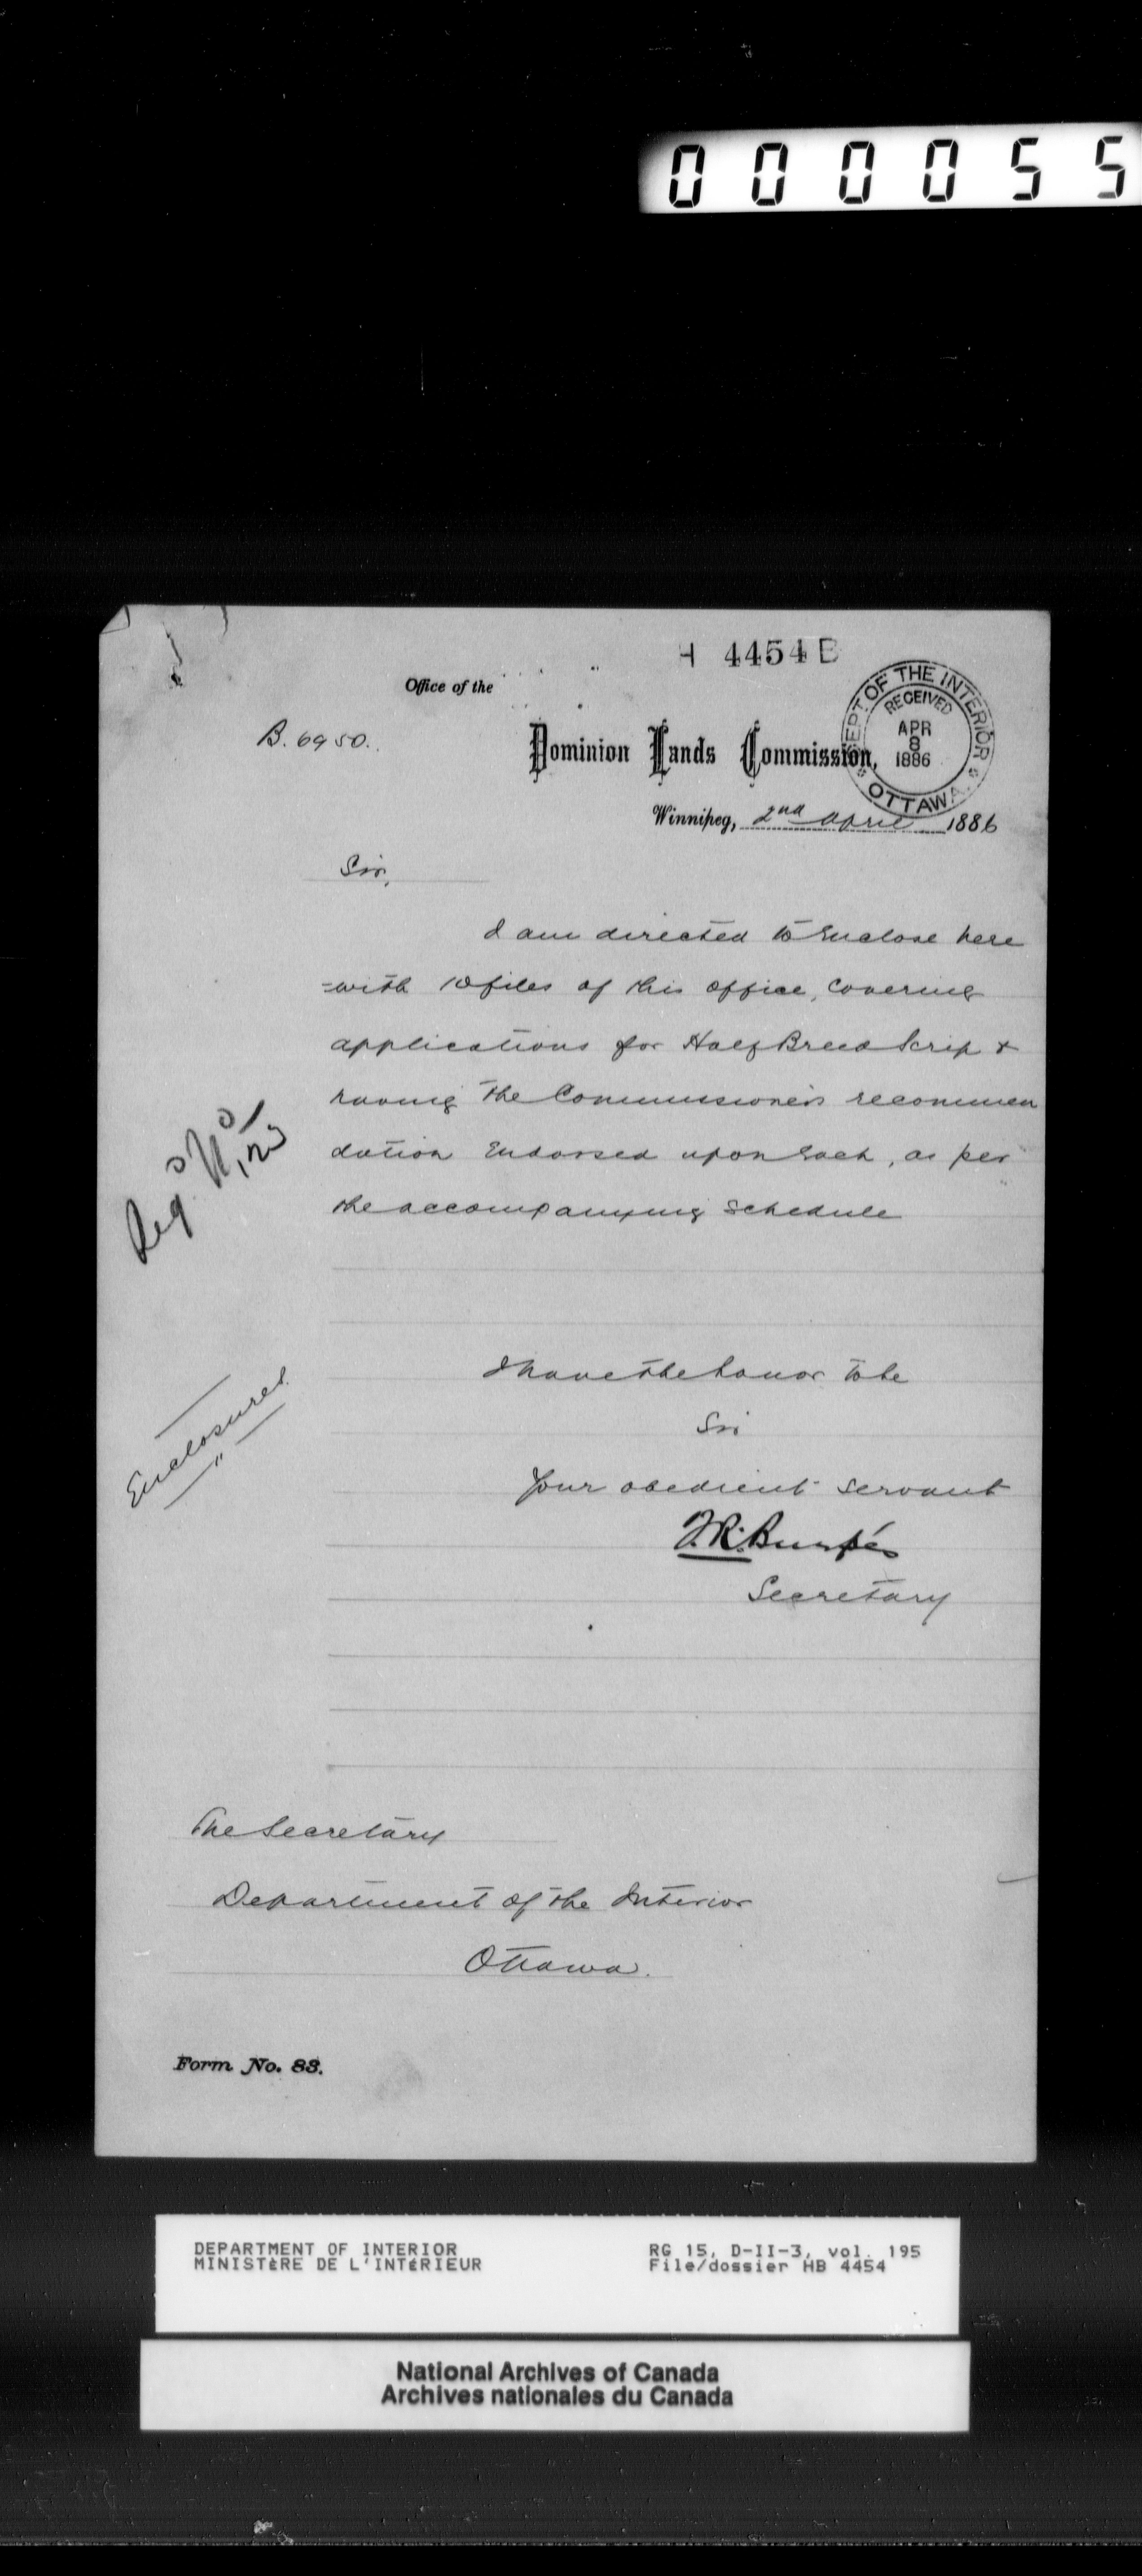 000055
H 4454 B
Office of the
B. 6950.
Dominion Lands Commission,
DEPT. OF THE INTERIOR
RECEIVED
APR
8
1886
OTTAWA
Winnipeg, 2nd April 1886
Sir,
I am directed to enclose here
=with 10 files of this office, covering
applications for Half Breed Scrip &
having the Commissioner's recommen
dation endorsed upon each, as per
the accompanying schedule
Reg
Enclosures
I have the honor to be
Sir
Your obedient servant
Secretary
The Secretary
Department of the Interior
Ottawa.
Form No. 83.
DEPARTMENT OF INTERIOR
MINISTÈRE DE L'INTÉRIEUR
RG 15, D-II-3, vol. 195
File/dossier HB 4454
National Archives of Canada
Archives nationales du Canada